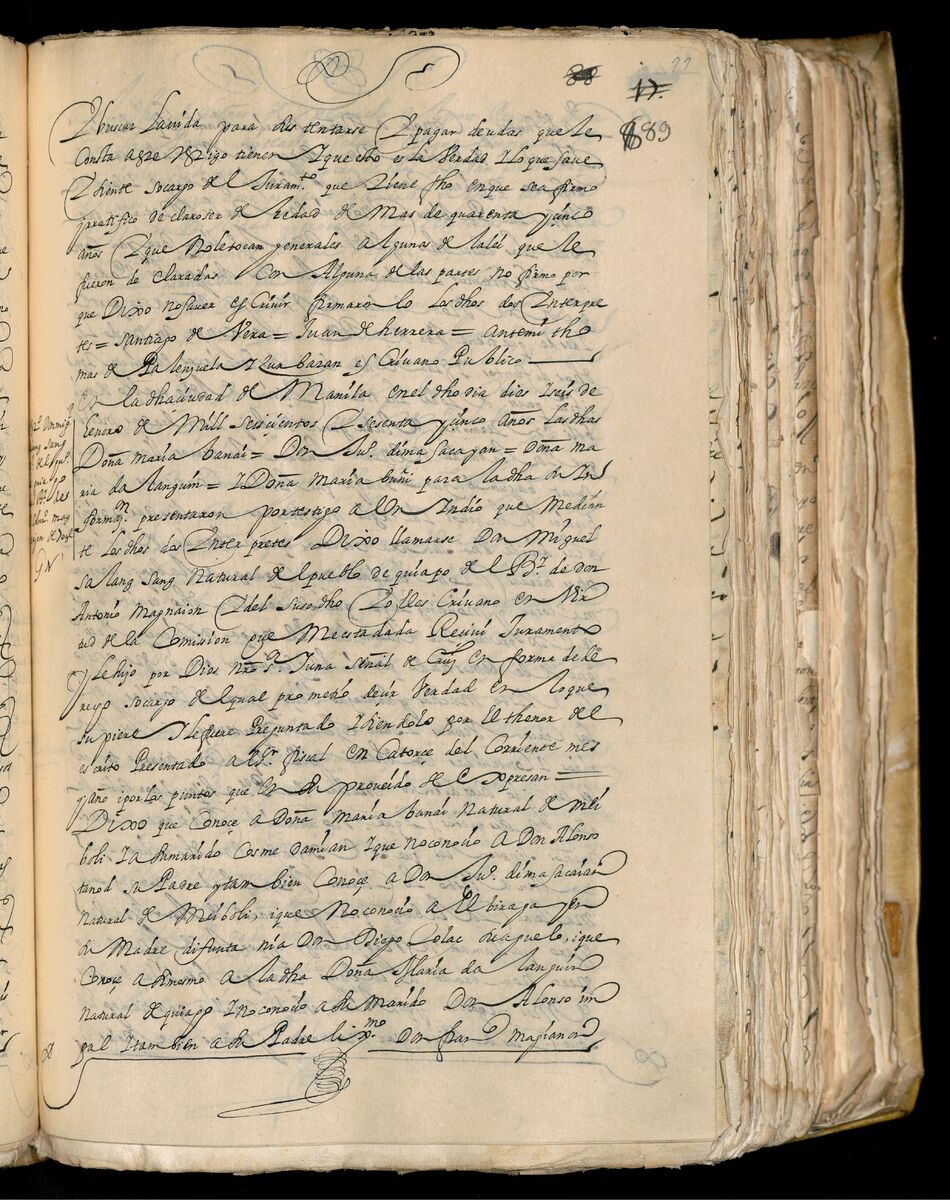 88
17.
89
Y buscar la uida para sustentarse Y pagar deudas que le
Consta a este testigo tienen Y que esto es la Verdad Y lo que saue
Y siente so cargo de el Juramto. que tiene fho en que se a firmo
y rratifico de claro ser de hedad de Mas de quarenta y sinco
años Y que No le tocan generales algunas de la lei que le
fueron de claradas Con Alguna de las partes no firmo por
que Dixo no sauer esCriuir firmaron lo Los dhos dos Ynterpre
tes = Santiago de Vera = Juan de herrera = ante mi tho
mas de Palenzuela Y Zurbaran esCriuano Publico
En la dha ciudad de Manila en el dho dia dies Y seis de
henero de Mill seiscientos Y sesenta y sinco años Las dhas
Doña maria banai = Don Ju°. dimasacayan = Doña ma
ria dalanguin = Y Doña Maria buñi para la dha su Yn
formaon. presentaron por testigo a Un Yndio que Median
te Los dhos dos Ynterpretes Dixo llamarse Don Miguel
salang sang Natural de el pueblo de quiapo de el Bar. de don
Antonio Magnaion Y del suso dho Yo el esCriuano en Vir
tud de la Comision que Me esta dada Reciui Juramento
Y le hizo por Dios nro sr. Y una señal de Cruz en forma de de
recho so cargo de el qual prometio desir Verdad en lo que
supiere Y le fuere Preguntado Y siendolo por El thenor de el
escrito Presentado a el sr. fiscal en Catorçe del Corriente mes
y año i por los puntos que en el proueido se expresan =
Dixo que Conoçe a Doña Maria banai Natural de Mei
boli Y a su marido Cosme Damian Y que no conocio a Don Alonso
tanod su Padre y tambien Conoçe a Don Ju°. dimasacaian
Natural de Meiboli, i que No conocio a El biraya su
su Madre difunta ni a Don Diego Solac su aguelo, i que
Conoçe asimesmo a la dha Doña Maria da languin
Natural de quiapo Y no conocio a su Marido Don Alonso
gal Y tambien a su Padre lixmo. Don franco. magsanoc